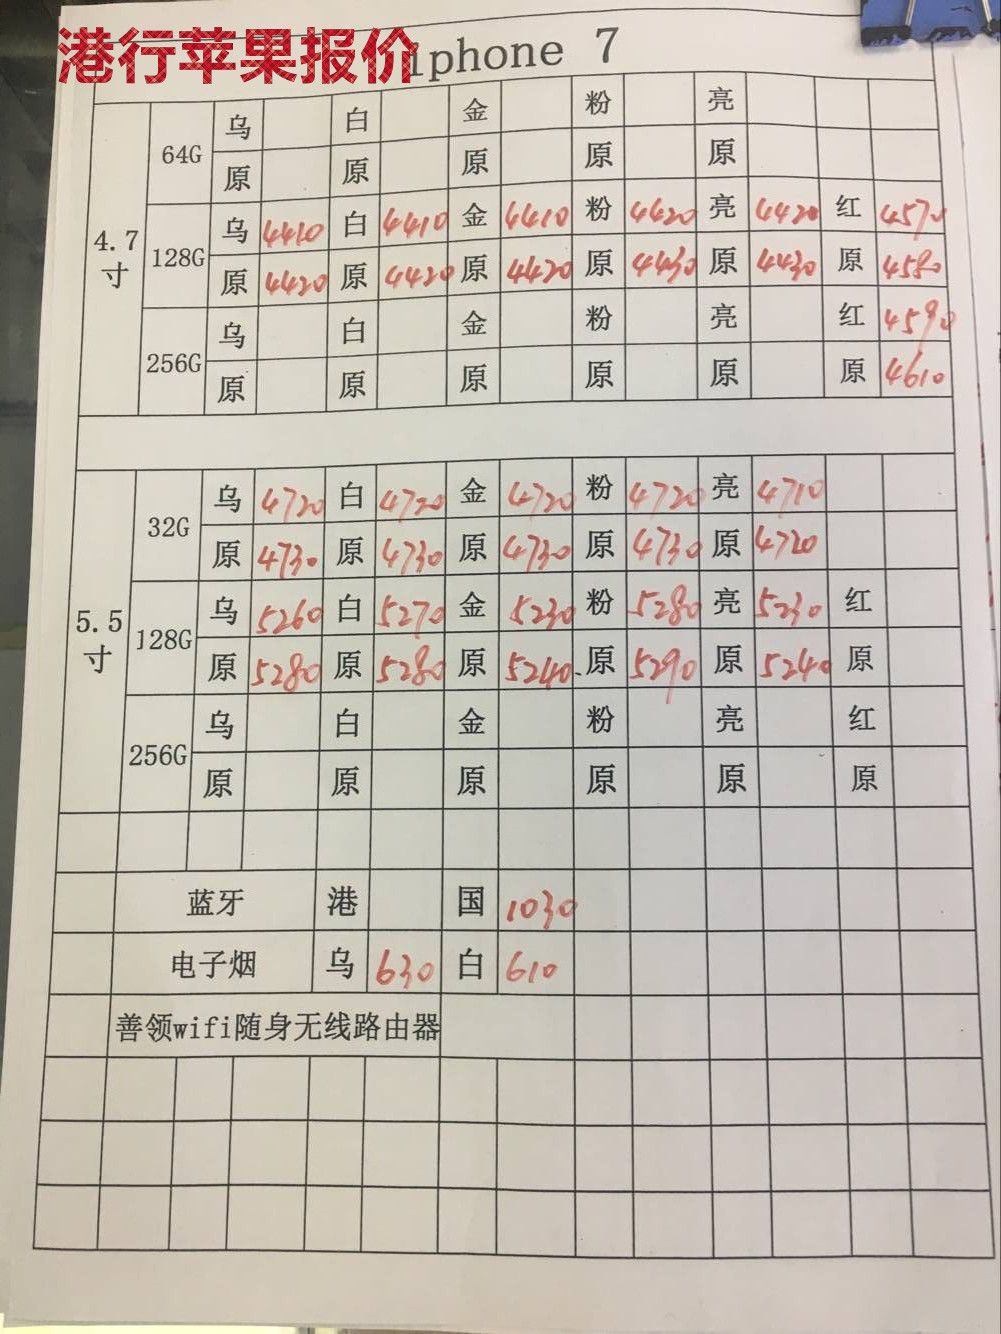 港行苹果报价
iphone 7
4.7寸 64G 乌 白 金 粉 亮
原 原 原 原 原
128G 乌 4410 白 4410 金 4410 粉 4420 亮 4420 红 4570
原 4420 原 4420 原 4420 原 4430 原 4430 原 4580
256G 乌 白 金 粉 亮 红 4590
原 原 原 原 原 原 4610
5.5寸 32G 乌 4720 白 4720 金 4720 粉 4720 亮 4710
原 4730 原 4730 原 4730 原 4730 原 4720
128G 乌 5260 白 5270 金 5230 粉 5280 亮 5230 红
原 5280 原 5280 原 5240 原 5290 原 5240 原
256G 乌 白 金 粉 亮 红
原 原 原 原 原 原
蓝牙 港 国 1030
电子烟 乌 630 白 610
善领wifi随身无线路由器